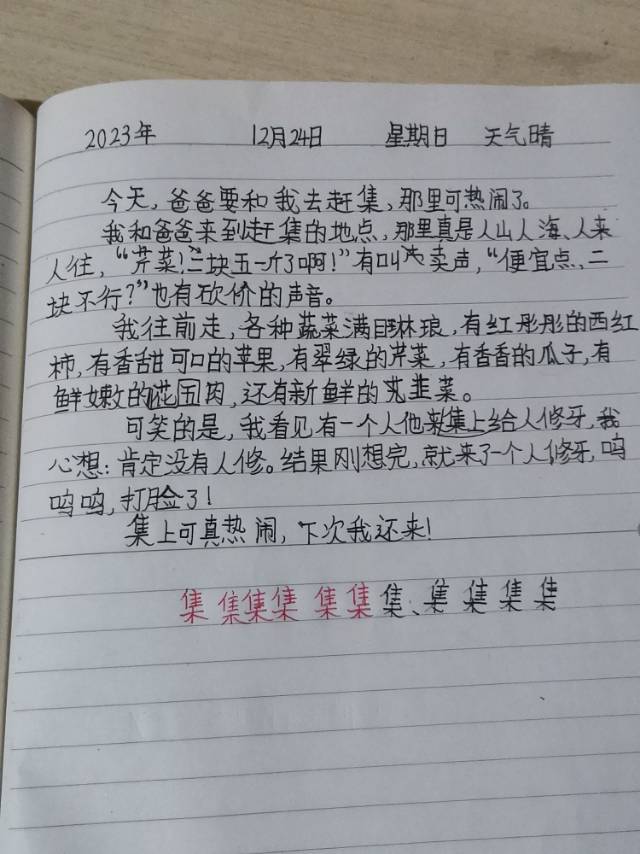 2023年 12月24日 星期日 天气晴
今天,爸爸要和我去赶集,那里可热闹了。
我和爸爸来到赶集的地点,那里真是人山人海、人来
人往,“芹菜!二块五一斤了啊!”有叫卖声,“便宜点、二
块不行?”也有砍价的声音。
我往前走,各种蔬菜满目琳琅,有红彤彤的西红
柿,有香甜可口的苹果,有翠绿的芹菜,有香香的瓜子,有
鲜嫩的花五肉,还有新鲜的韭菜。
可笑的是,我看见有一个人他来集上给人修牙,我
心想:肯定没有人修。结果刚想完,就来了一个人修牙,呜
呜呜,打脸了!
集上可真热闹,下次我还来!
集 集集集 集集集、集集集集